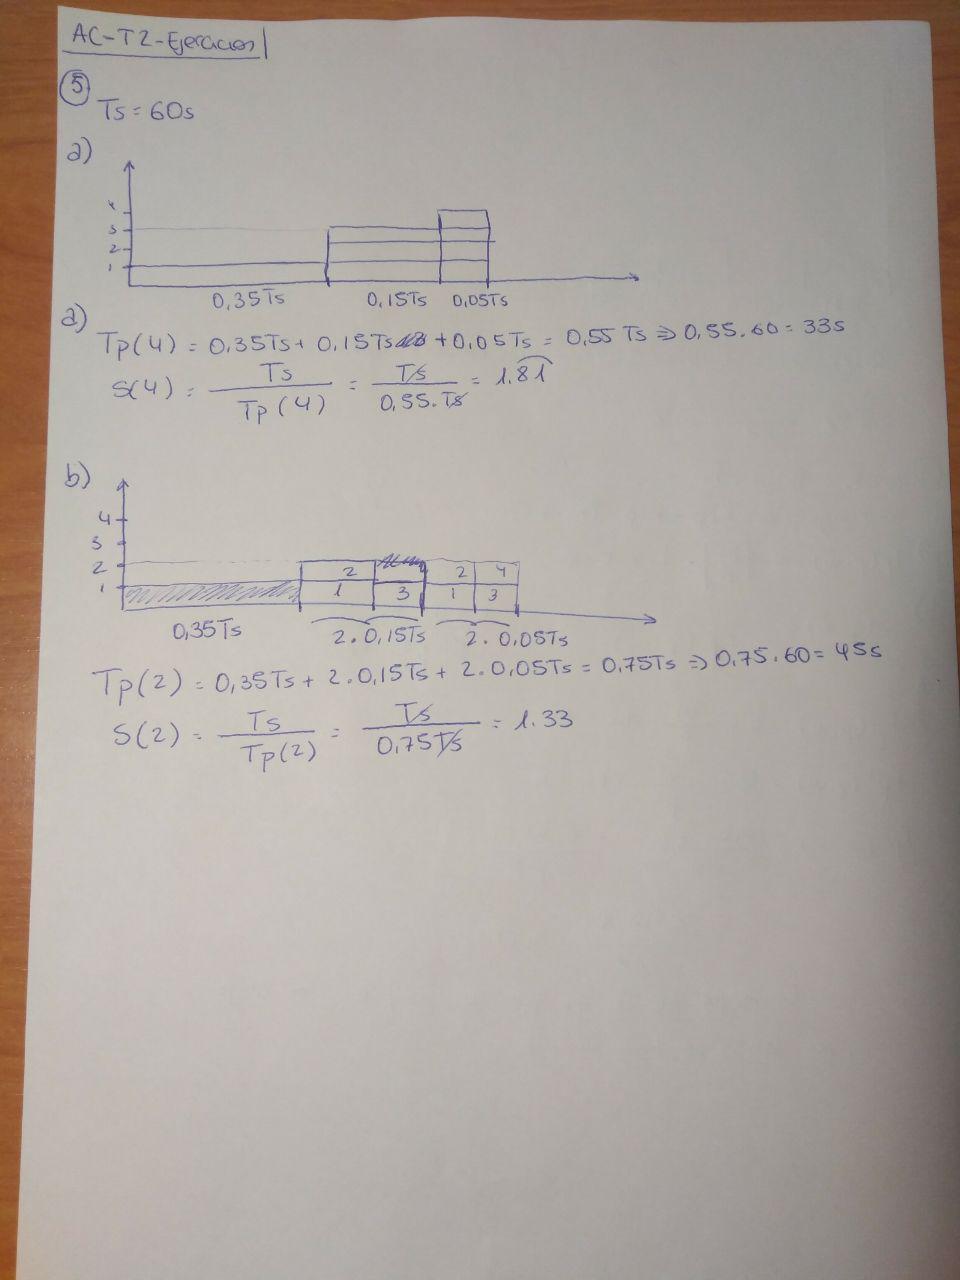 AC-T2-Ejercicios
5
Ts = 60s
a)
4
3
2
1
0,35Ts 0,15Ts 0,05Ts
a)
Tp(4) = 0,35Ts + 0,15Ts + 0,05Ts = 0,55 Ts ⇒ 0,55.60 = 33s
S(4) = Ts / Tp(4) = Ts / 0,55.Ts = 1.81
b)
4
3
2
1
2 2 4
1 3 1 3
0,35Ts 2.0,15Ts 2.0,05Ts
Tp(2) = 0,35Ts + 2.0,15Ts + 2.0,05Ts = 0,75Ts ⇒ 0,75.60 = 45s
S(2) = Ts / Tp(2) = Ts / 0,75Ts = 1.33